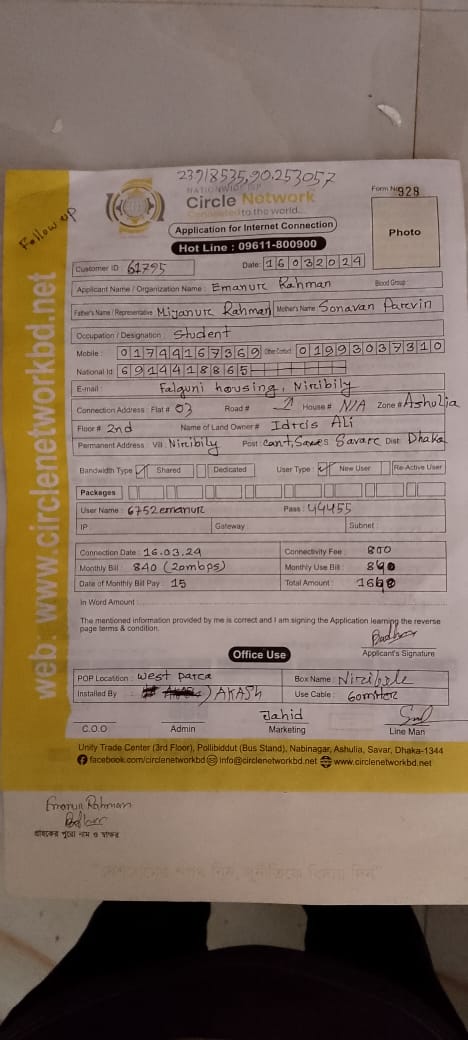 23.918535,90.253057
Follow up
NATIONWIDE ISP
Circle Network
Connected to the world...
Form No. 928
Application for Internet Connection
Hot Line : 09611-800900
Photo
Customer ID : 61795
Date: 16032024
Applicant Name / Organization Name : Emanur Rahman Blood Group :
Father's Name / Representative Mijanur Rahman Mother's Name Sonavan Parvin
Occupation / Designation : Student
Mobile : 01744167369 Other Contact 01993037310
National Id 6914418865
E-mail : Falguni housing, Niribily
Connection Address : Flat # 03 Road # House # N/A Zone # Ashulia
Floor # 2nd Name of Land Owner # Idris Ali
Permanent Address : Vill Niribily Post Savar Dist: Dhaka
Bandwidth Type Shared Dedicated User Type : New User Re-Active User
Packages
User Name : 6752emanur Pass : 44455
IP : Gateway : Subnet :
Connection Date : 16.03.24 Connectivity Fee : 800
Monthly Bill : 840 (20mbps) Monthly Use Bill : 840
Date of Monthly Bill Pay : 15 Total Amount : 1640
In Word Amount :
The mentioned information provided by me is correct and I am signing the Application learning the reverse
page terms & condition.
Applicant's Signature
Office Use
POP Location : West Parca Box Name :
Installed By : AKASH Use Cable :
Jahid
C.O.O Admin Marketing Line Man
Unity Trade Center (3rd Floor), Pollibiddut (Bus Stand), Nabinagar, Ashulia, Savar, Dhaka-1344
facebook.com/circlenetworkbd info@circlenetworkbd.net www.circlenetworkbd.net
web: www.circlenetworkbd.net
Emanur Rahman
গ্রাহকের পুরো নাম ও স্বাক্ষর